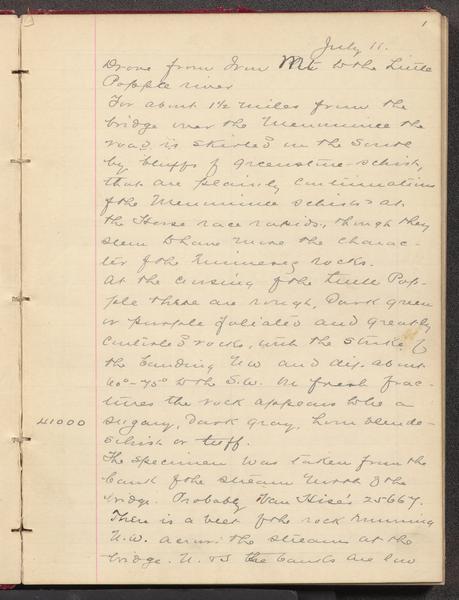 1
July 11.
Drove from Iron Mt to the Little
Popple river
For about 1½ miles from the
bridge over the Menominee the
road is skirted on the South
by bluffs of greenstone-schist,
that are plainly continuations
of the Menominee schists at
the Horse race rapids, though they
seem to have more the charac-
ter of the rocks.
At the crossing of the Little Pop-
ple there are rough, dark green
or purple foliated and greatly
contorted rocks, with the strike of
the banding NW and dip about
60°-75° to the S.W. On fresh frac-
tures the rock appears like a
41000 sugary, dark gray, hornblende-
schist or tuff.
The specimen was taken from the
bank of the stream North of the
bridge. Probably Van Hise's 25667.
There is a belt of the rock running
N.W. across the stream at the
bridge. N. & S the banks are low